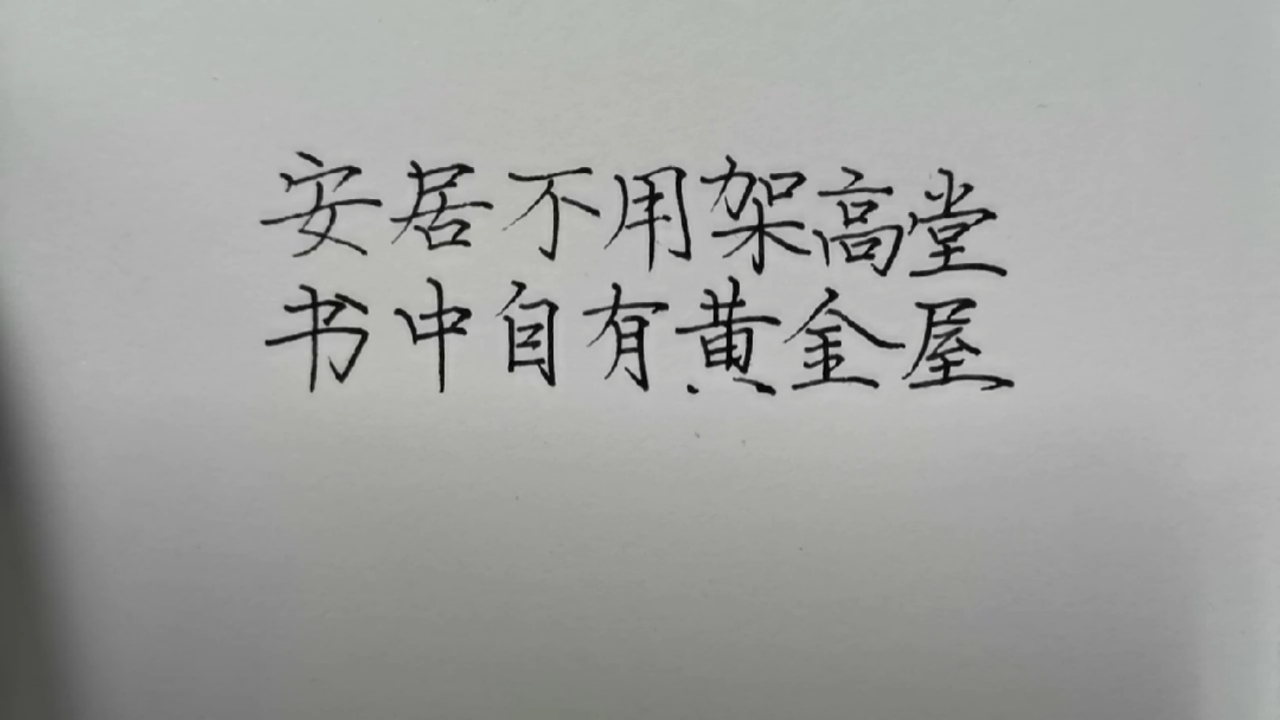 安居不用架高堂
书中自有黄金屋